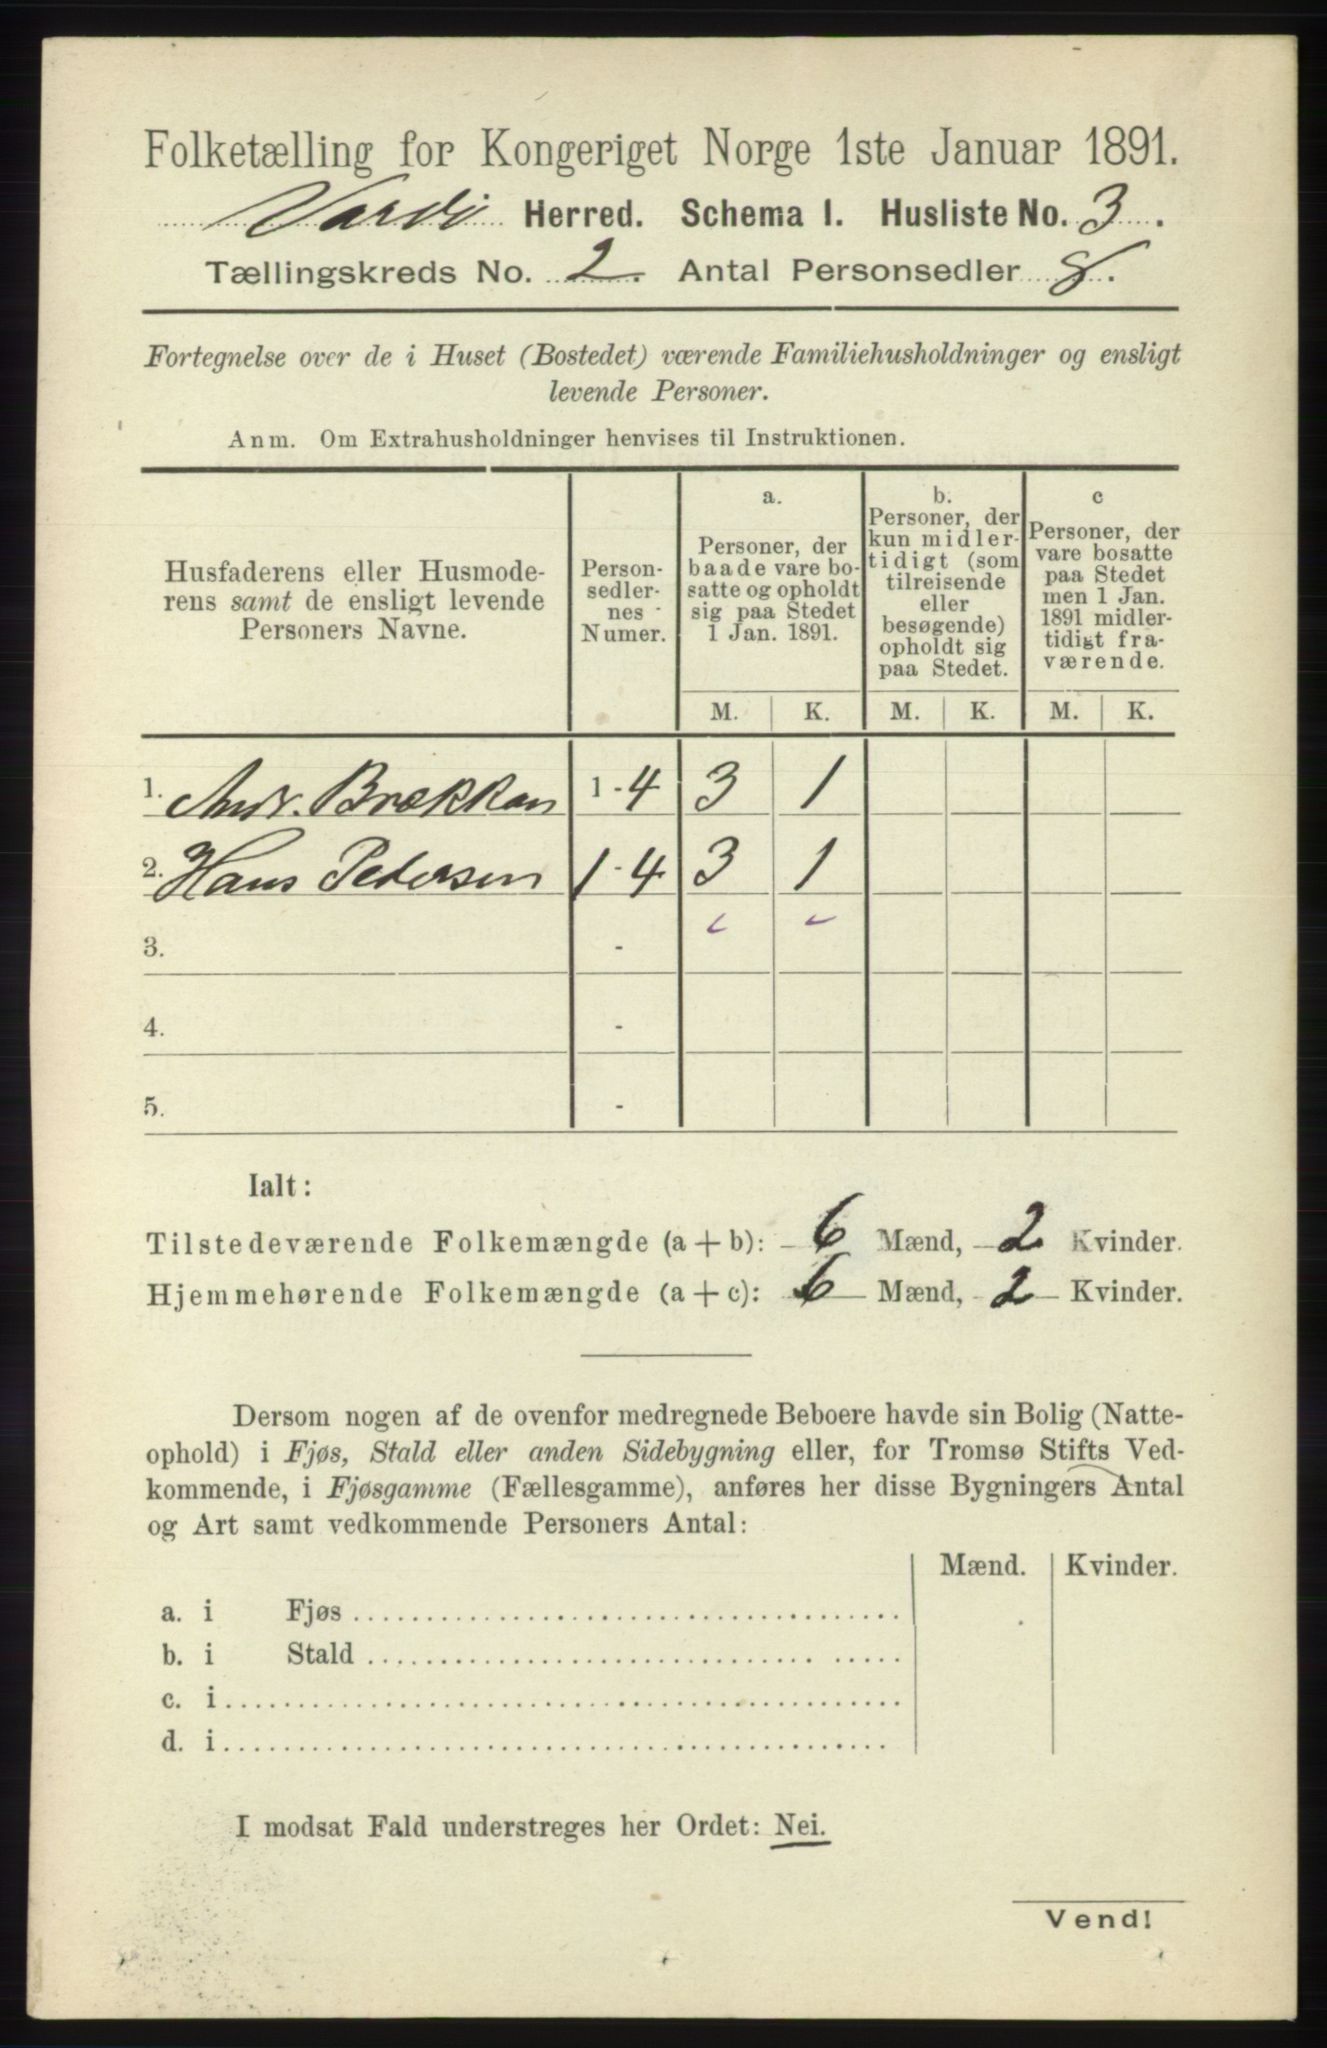 Folketælling for Kongeriget Norge 1ste Januar 1891.
Vardö Herred. Schema I. Husliste No. 3.
Tællingskreds No. 2. Antal Personsedler 8.
Fortegnelse over de i Huset (Bostedet) værende Familiehusholdninger og ensligt
levende Personer.
Anm. Om Extrahusholdninger henvises til Instruktionen.
Husfaderens eller Husmode-
rens samt de ensligt levende
Personers Navne.
Person-
sedler-
nes
Numer.
a.
Personer, der
baade vare bo-
satte og opholdt
sig paa Stedet
1 Jan. 1891.
b.
Personer, der
kun midler-
tidigt (som
tilreisende
eller
besøgende)
opholdt sig
paa Stedet.
c
Personer, der
vare bosatte
paa Stedet
men 1 Jan.
1891 midler-
tidigt fra-
værende.
M. K. M. K. M. K.
1. Andr. Brækkan 1-4 3 1
2. Hans Pedersen 1-4 3 1
3. -
4. -
5. -
Ialt:
Tilstedeværende Folkemængde (a+b): 6 Mænd, 2 Kvinder.
Hjemmehørende Folkemængde (a+c): 6 Mænd, 2 Kvinder.
Dersom nogen af de ovenfor medregnede Beboere havde sin Bolig (Natte-
ophold) i Fjøs, Stald eller anden Sidebygning eller, for Tromsø Stifts Ved-
kommende, i Fjøsgamme (Fællesgamme), anføres her disse Bygningers Antal
og Art samt vedkommende Personers Antal:
Mænd. Kvinder.
a. i Fjøs
b. i Stald
c. i
d. i
I modsat Fald understreges her Ordet: Nei.
Vend!